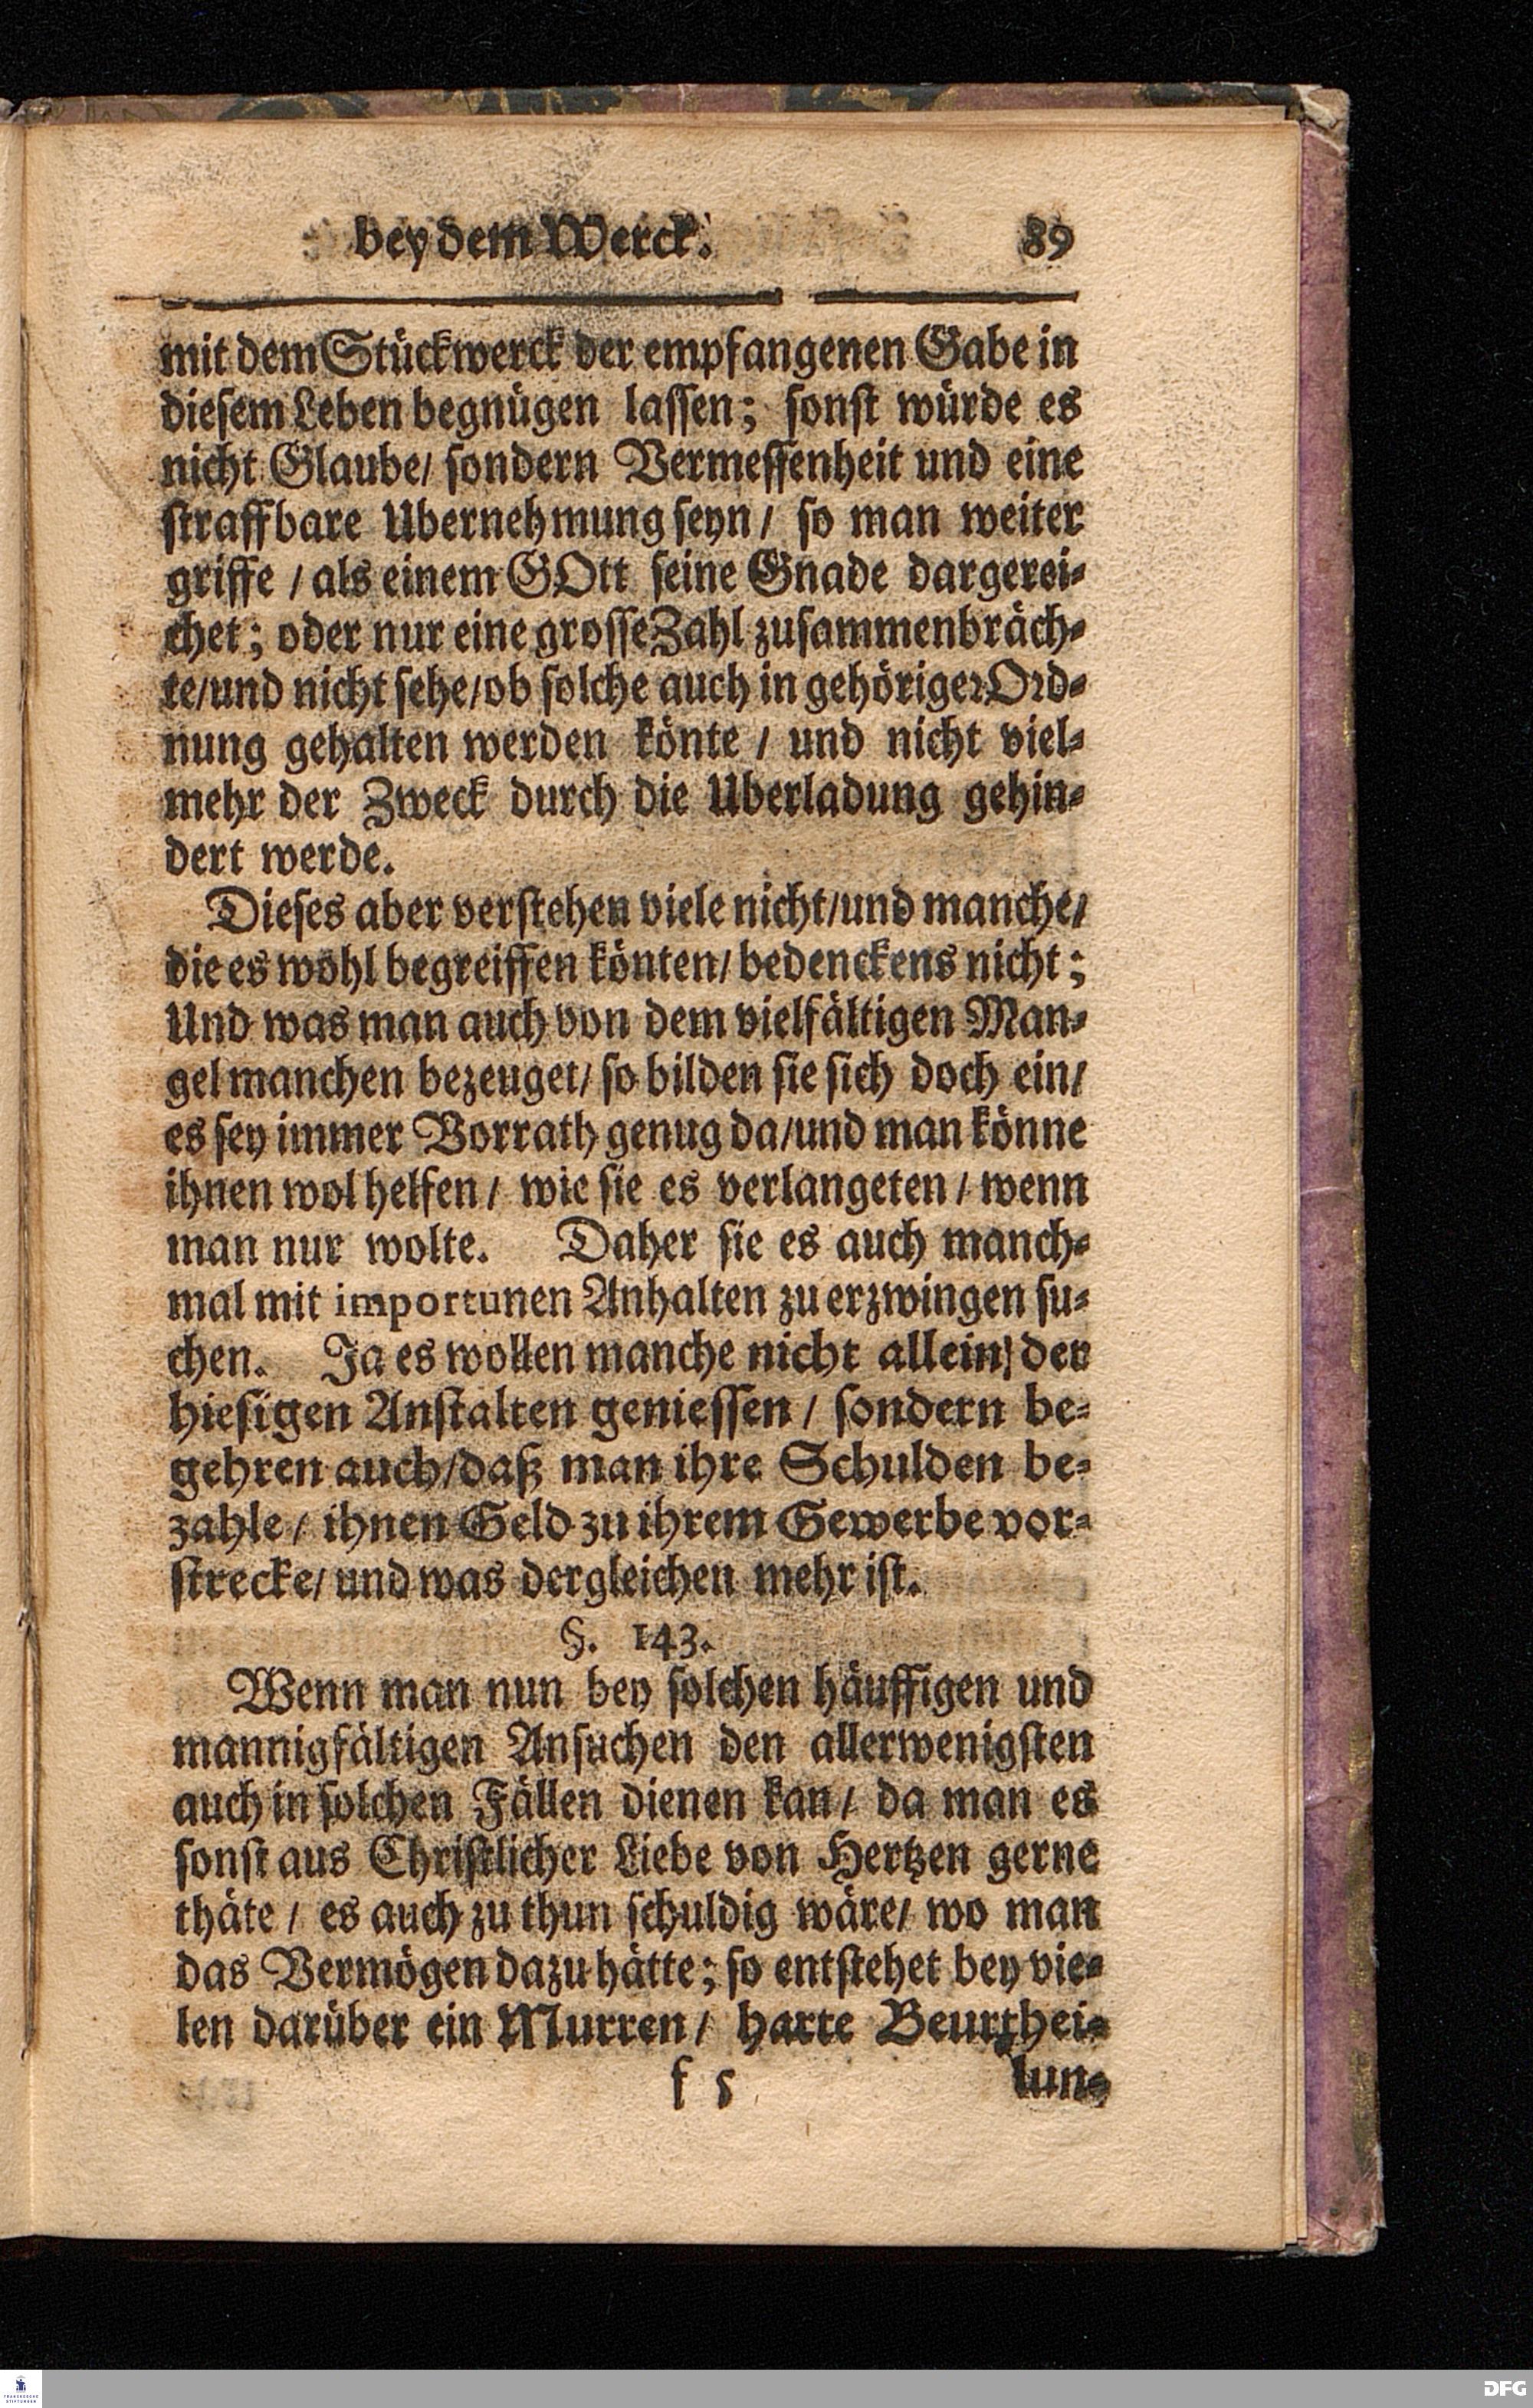 bey dem Werck. 89
mit dem Stückwerck der empfangenen Gabe in
diesem Leben begnügen lassen; sonst würde es
nicht Glaube/ sondern Vermessenheit und eine
straffbare Ubernehmung seyn/ so man weiter
griffe / als einem GOtt seine Gnade dargerei-
chet; oder nur eine grosse Zahl zusammenbräch-
te/und nicht sehe/ob solche auch in gehöriger Ord-
nung gehalten werden könte / und nicht viel-
mehr der Zweck durch die Uberladung gehin-
dert werde.
Dieses aber verstehen viele nicht/und manche/
die es wohl begreiffen könten/ bedenckens nicht;
Und was man auch von dem vielfältigen Man-
gel manchen bezeuget/ so bilden sie sich doch ein/
es sey immer Vorrath genug da/und man könne
ihnen wol helfen/ wie sie es verlangeten / wenn
man nur wolte. Daher sie es auch manch-
mal mit importunen Anhalten zu erzwingen su-
chen. Ja es wollen manche nicht allein/ der
hiesigen Anstalten geniessen / sondern be-
gehren auch/daß man ihre Schulden be-
zahle / ihnen Geld zu ihrem Gewerbe vor-
strecke/ und was dergleichen mehr ist.
§. 143.
Wenn man nun bey solchen häuffigen und
mannigfältigen Ansuchen den allerwenigsten
auch in solchen Fällen dienen kan/ da man es
sonst aus Christlicher Liebe von Hertzen gerne
thäte / es auch zu thun schuldig wäre/ wo man
das Vermögen dazu hätte; so entstehet bey vie-
len darüber ein Murren/ harte Beurthei-
f 5 lun-
FRANCKESCHE STIFTUNGEN
DFG